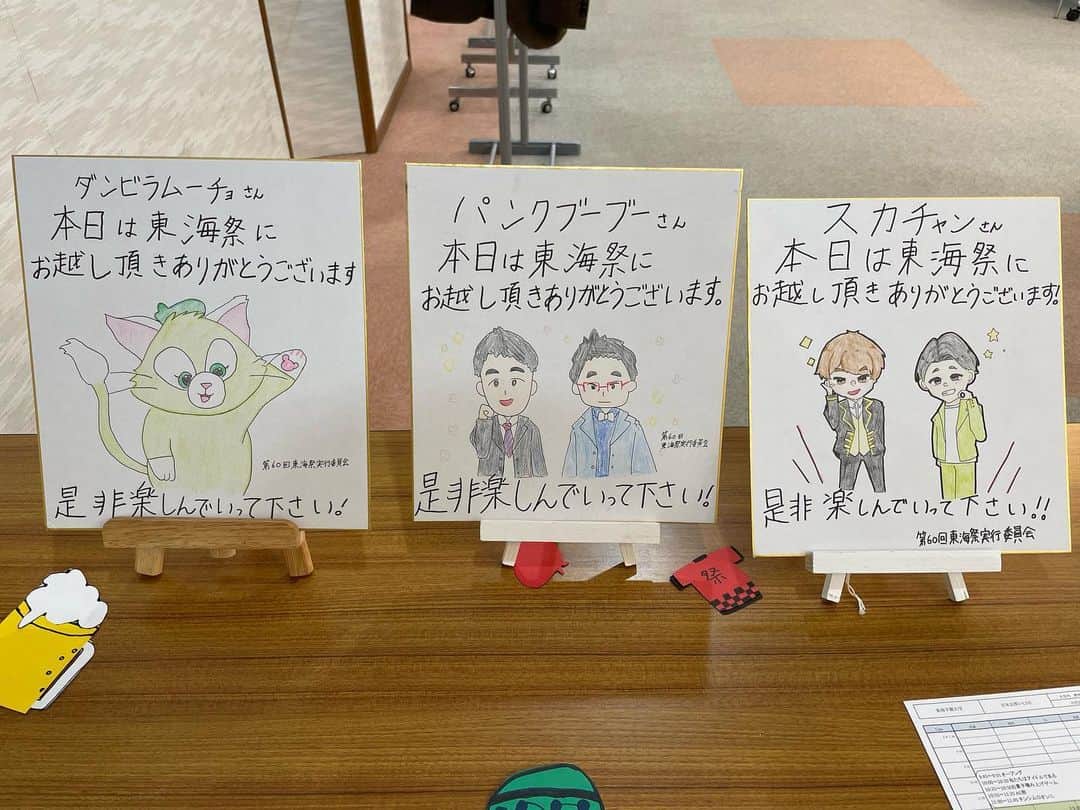 ダンビラムーチョさん
本日は東海祭に
お越し頂きありがとうございます
第60回東海祭実行委員会
是非楽しんでいって下さい!
パンクブーブーさん
本日は東海祭に
お越し頂きありがとうございます。
第60回
東海祭実行委員会
是非楽しんでいって下さい!
スカチャンさん
本日は東海祭に
お越し頂きありがとうございます!
是非楽しんでいって下さい!!
第60回東海祭実行委員会
祭